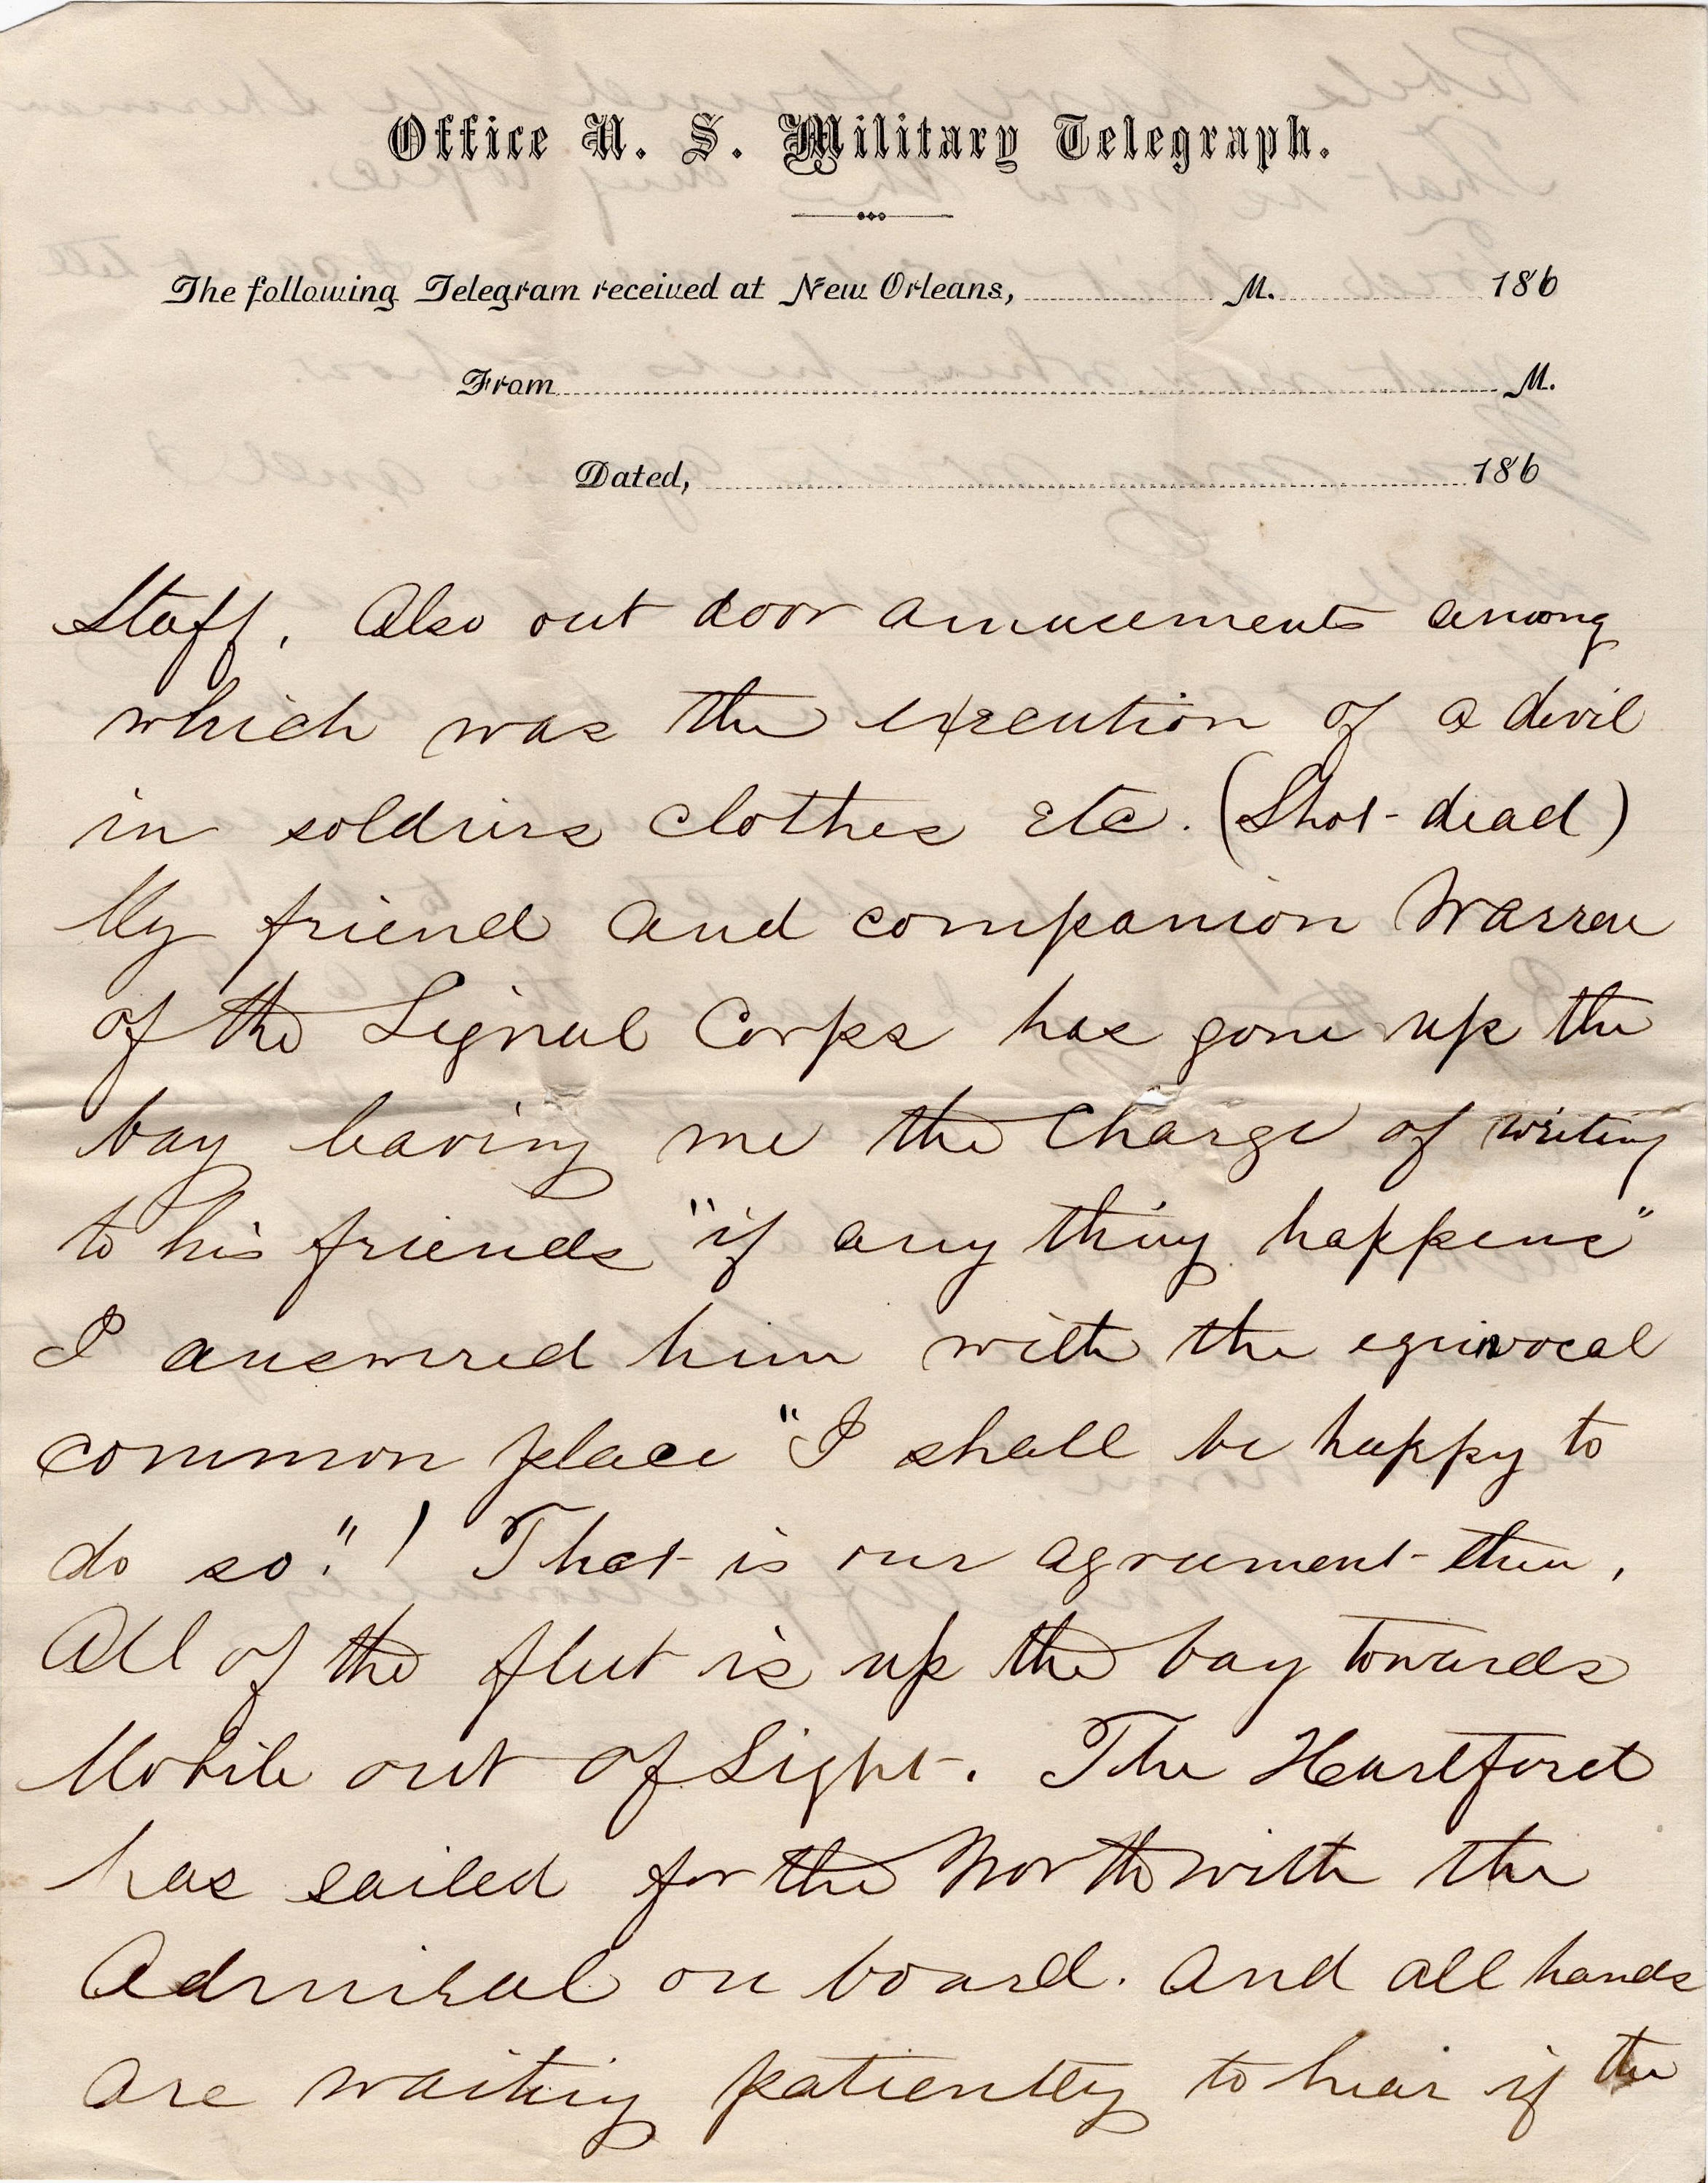 Office U. S. Military Telegraph.
The following Telegram received at New Orleans, M. 186
From M.
Dated, 186
Staff. Also out door amusements among
which was the execution of a devil
in soldiers clothes etc. (Shot dead)
My friend and companion Warren
of the Signal Corps has gone up the
bay leaving me the charge of writing
to his friends "if any thing happens"
I answered him with the equivocal
common place "I shall be happy to
do so."! That is our agreement then,
All of the fleet is up the bay towards
Mobile out of sight. The Hartford
has sailed for the North with the
Admiral on board. And all hands
are waiting patiently to hear if the